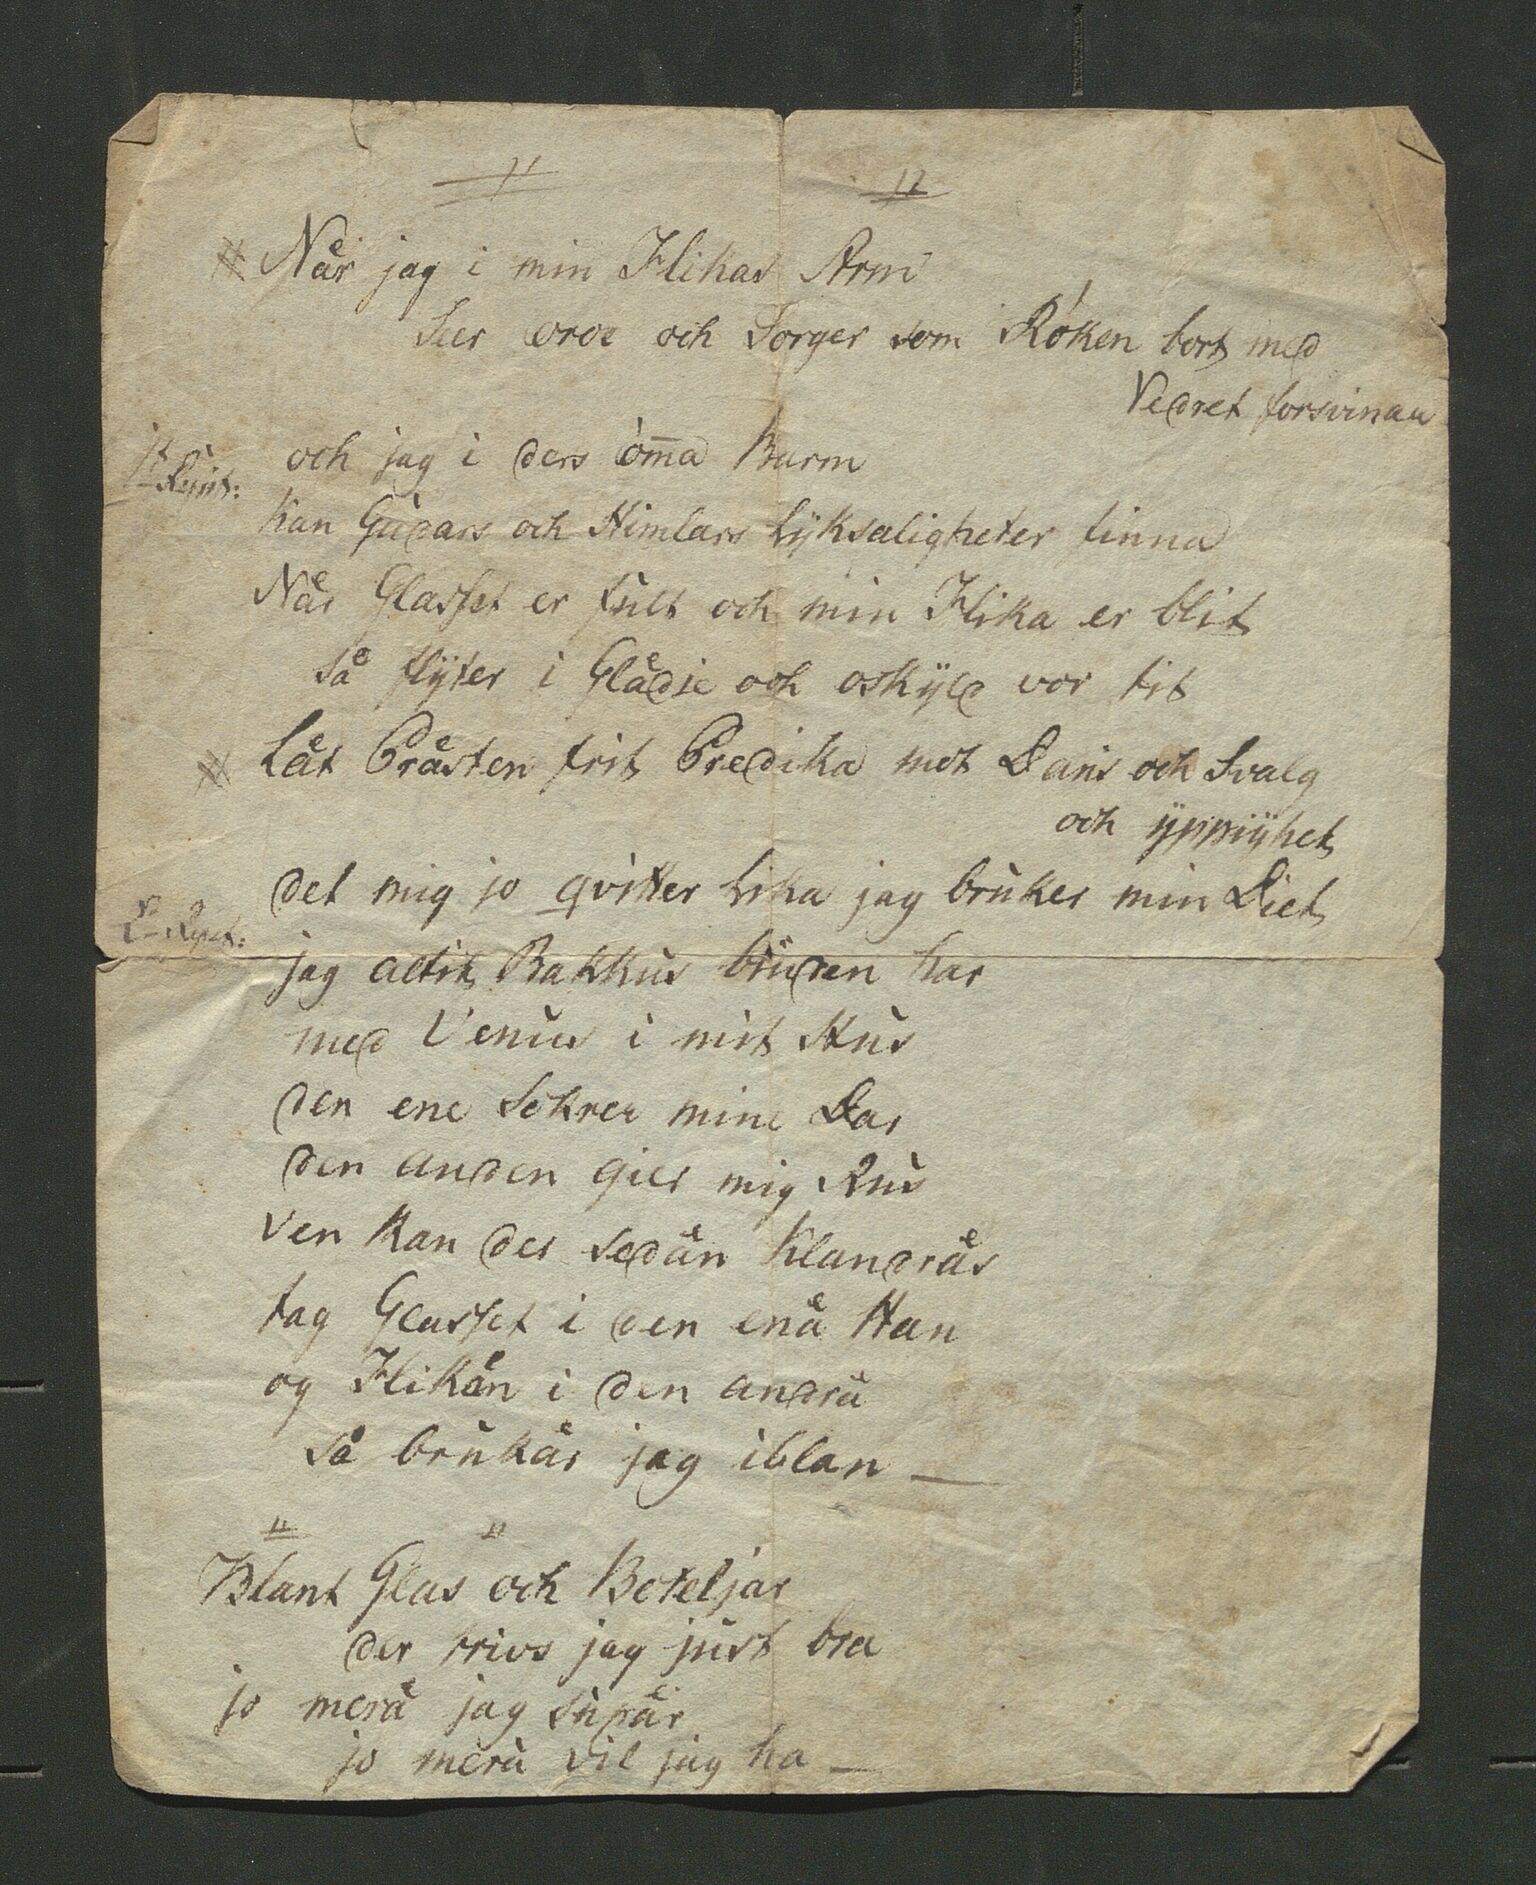 11 12
# Når jag i min Flikas Arm
Seer oroe och Sorger som Röken bort med
Vedret forsvinaa
och jag i ders öm̅a Barm
1ste Repit:
kan Gudars och Himlars Lÿksaligheter finna
Når Glasset er fult och min Flika er blit
så flÿter i Glådie och oskÿld vor tit
# Låt Pråsten frit Predika mot Dans och Svalg
och ÿppiÿhet
det mig jo qvitter Lika jag bruker min Diet
2den Repet:
jag altit Bakkus buden har
med Venus i mit Hus
den ene Sekrer mine Dar
den anden gier mig Rus
Ven kan des sedån klandrås
tag Glasset i den enå Han
og Flikån i den andrå
så brukår jag iblan —
11 11
Blant Glas och Boteljar
der trivs jag just bra
jo merå jag supår
jo merå vil jag ha —